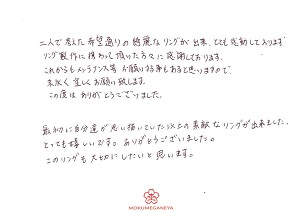 二人で考えた希望通りの綺麗なリングが出来、とても感動して入ります
リング製作に携わって頂いた方々に感謝しております。
これからもメンテナンス等お願いする事もあると思いますので
末永く宜しくお願い致します。
この度はありがとうございました。
最初に自分達が思い描いていた以上の素敵なリングが出来ました。
とっても嬉しいです。ありがとうございました。
このリングも大切にしたいと思います。
MOKUMEGANEYA